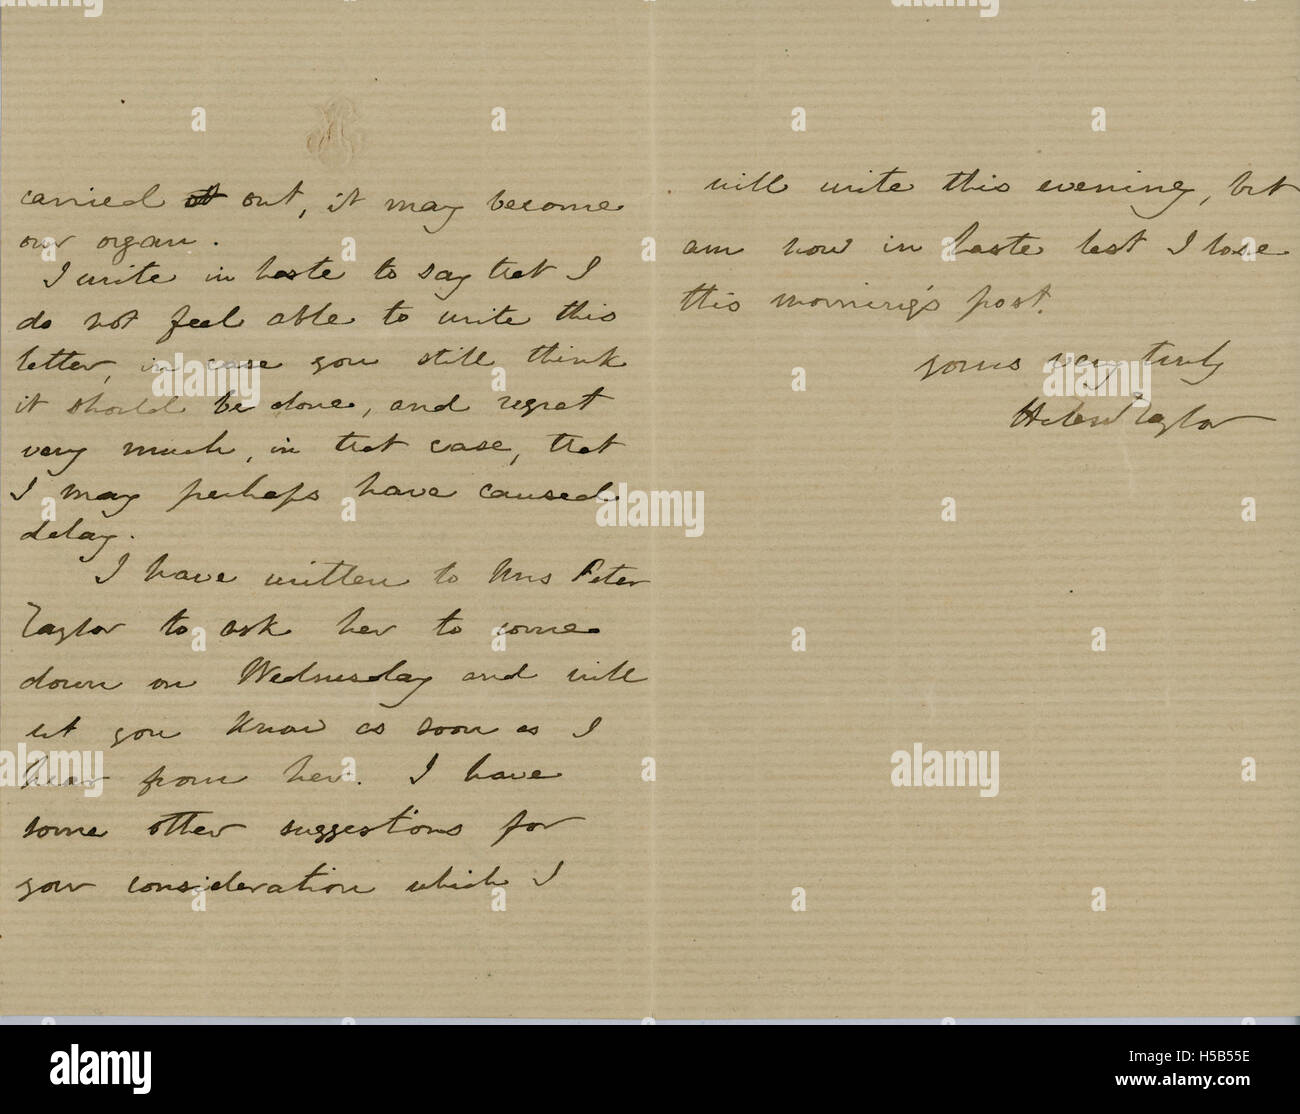 carried out, it may become
our organ.
I write in haste to say that I
do not feel able to write this
letter, in case you still think
it should be done, and regret
very much, in that case, that
I may perhaps have caused
delay.
I have written to Mrs Peter
Taylor to ask her to come
down on Wednesday and will
let you know as soon as I
hear from her. I have
some other suggestions for
your consideration which I
will write this evening, but
am now in haste lest I lose
this morning's post.
yours very truly
Helen Taylor
alamy stock photo
H5B55E
www.alamy.com